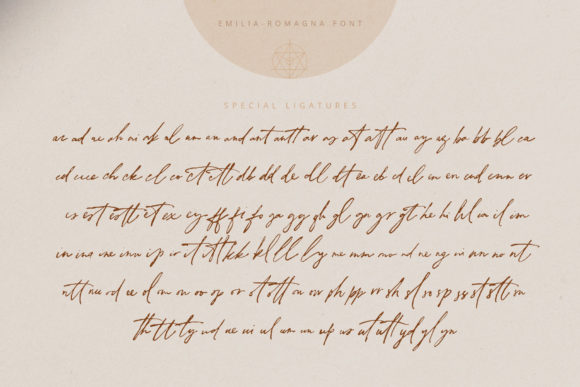 EMILIA-ROMAGNA FONT
SPECIAL LIGATURES
ac ad ae ah ai ak al am an and ant antt ar as at att au ay az ba bb bl ca
cd ch ck cl co ct ctt db dd de dl dt ea eb ed el en end er
est estt et ex ey ff fi fo ga gg gh gl gn gr gt he hi hl ia il im
in ip ir it itt kk kl ll ly me mm mo nd ne ng ni nn no nt
ntt nu od oe ol om on oo op or ot ott ou ov ph pp rr sh sl so sp ss st stt
th tt ty ud ue ui ul um un up us ut utt yd yl yn